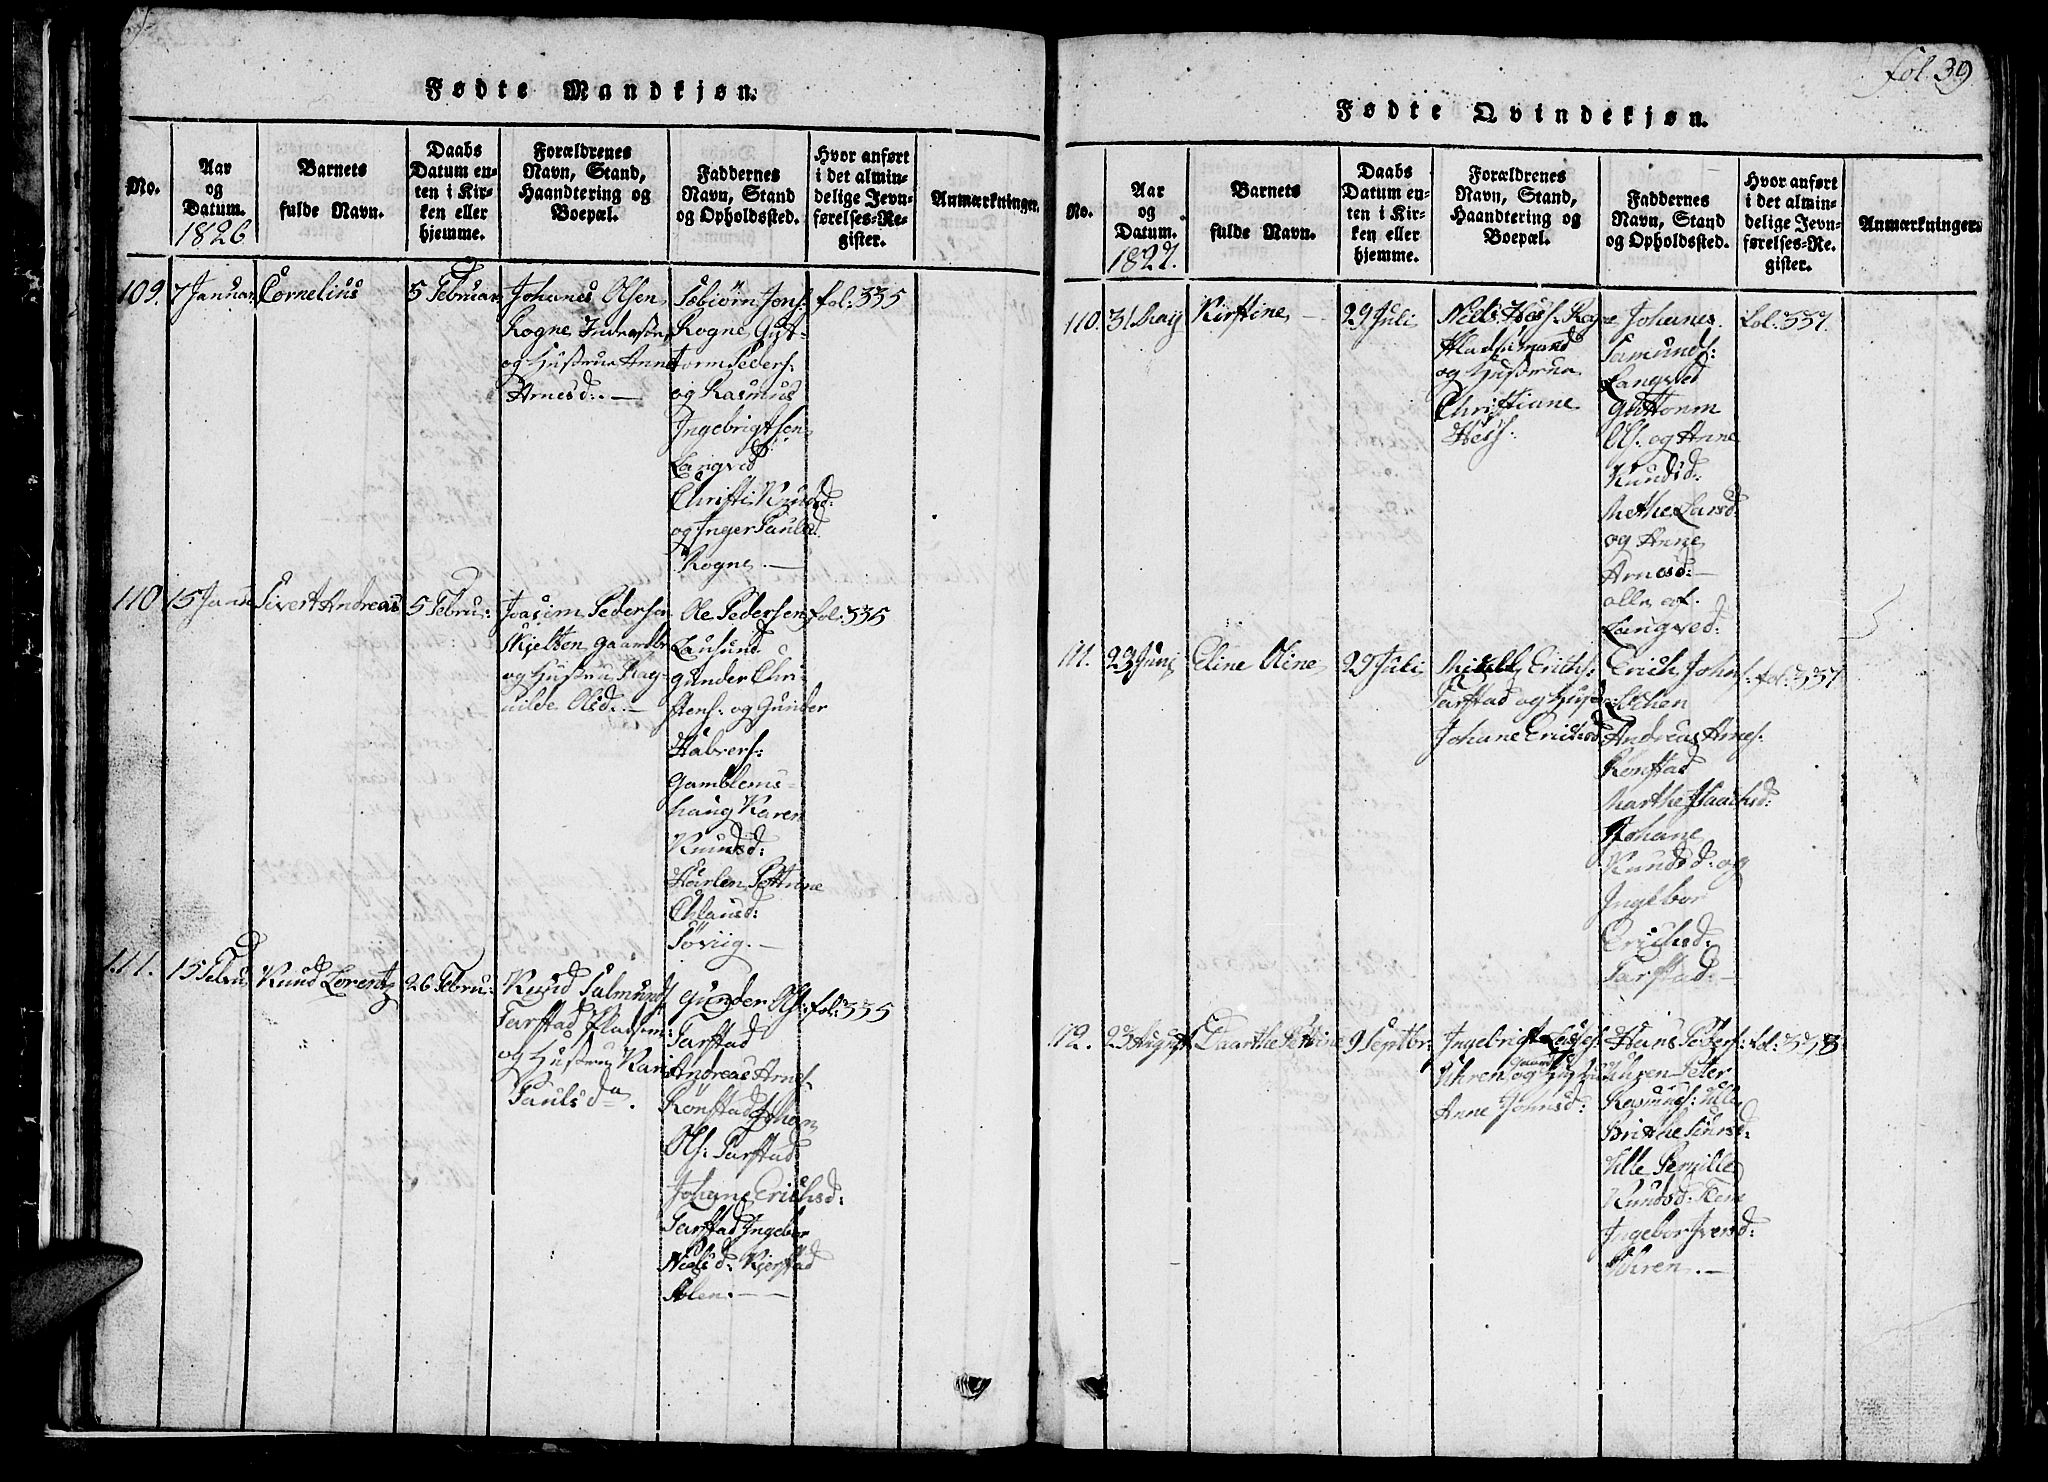 fol. 39
Fødte Mandkjøn.
No.
Aar
og
Datum.
1826
Barnets
fulde Navn.
Daabs
Datum en-
ten i Kir-
ken eller
hjemme.
Forældrenes
Navn, Stand,
Haandtering og
Boepæl.
Faddernes
Navn, Stand
og Opholdsted.
Hvor anført
i det almin-
delige Jevn-
førelses-Re-
gister.
Anmærkninger.
109.
7 Januar
Cornelius
5 Februar
Johanes Olsen
Rogne Inderst
og Hustrue Anne
Arnesd:
Tøbiörn Jons:
Rogne Gut-
torm Peders:
og Rasmus
Ingebrigtsen
Langved
Christi Knudsd:
og Inger Paulsd
Rogne.
fol: 335
110
15 Janu
Sivert Andreas
5 Febru:
Joacim Pedersen
Skjelten gaardbr
og Hustru Rag-
nilde Olsd.
Ole Pedersen
Lausund
gunder Chri-
stens: og Gunder
Halvers:
Gamblems-
haug Karen
Knudsd:
Hårlen Pettrine
Chlausd:
Söviig.
fol: 335
111.
15 Febru
Knud Lorentz
26 Febru:
Knud Salmunds
Tarstad Pladsm:
og Hustru Kari
Paulsda.
gunder Ols:
Tarstad
Andreas Arnes
Rönstad Johan
Ols: Tarstad
Johane Erichsd:
Tarstad Ingebor
Nielsd: Kjerstad
Holen.
fol: 335
Fødte Qvindekjøn.
No.
Aar
og
Datum.
1827.
Barnets
fulde Navn.
Daabs
Datum en-
ten i Kir-
ken eller
hjemme.
Forældrenes
Navn, Stand,
Haandtering og
Boepæl.
Faddernes
Navn, Stand
og Opholdsted.
Hvor anført
i det almin-
delige Jevn-
førelses-Re-
gister.
Anmærkninger.
110.
31 May
Kirstine
29 Juli
Niels Hess: Rogne
Pladsemand
og Hustrue
Christiane
Hess:
Johanes
Samunds:
Langved
Guttorm
Ols. og Anne
Knudsd:
Methe Larsd:
og Anne
Arnesd:
alle af
Langved:
fol: 337.
111.
23 Juni
Eline Oline
29 Juli
Erichs:
Tarstad og Hustr
Johane Erichsd
Erich Johns:
Lochen
Andreas Arnes:
Ronstad
Marthe Isaachsd:
Johane
Knudsd: og
Ingebor
Erichsd:
Tarstad:
fol: 337
112.
23 August
Daarthe Petrine
9 Septbr:
Ingebrigt
Uhren gaard og Hustru
Anne Johnsd:
Hans Peders:
Uhren Peter
Rasmus: Ulle
Brithe
Ulle Pernille
Knudsd: Fem
Ingebor Iversd:
Uhren.
fol: 338